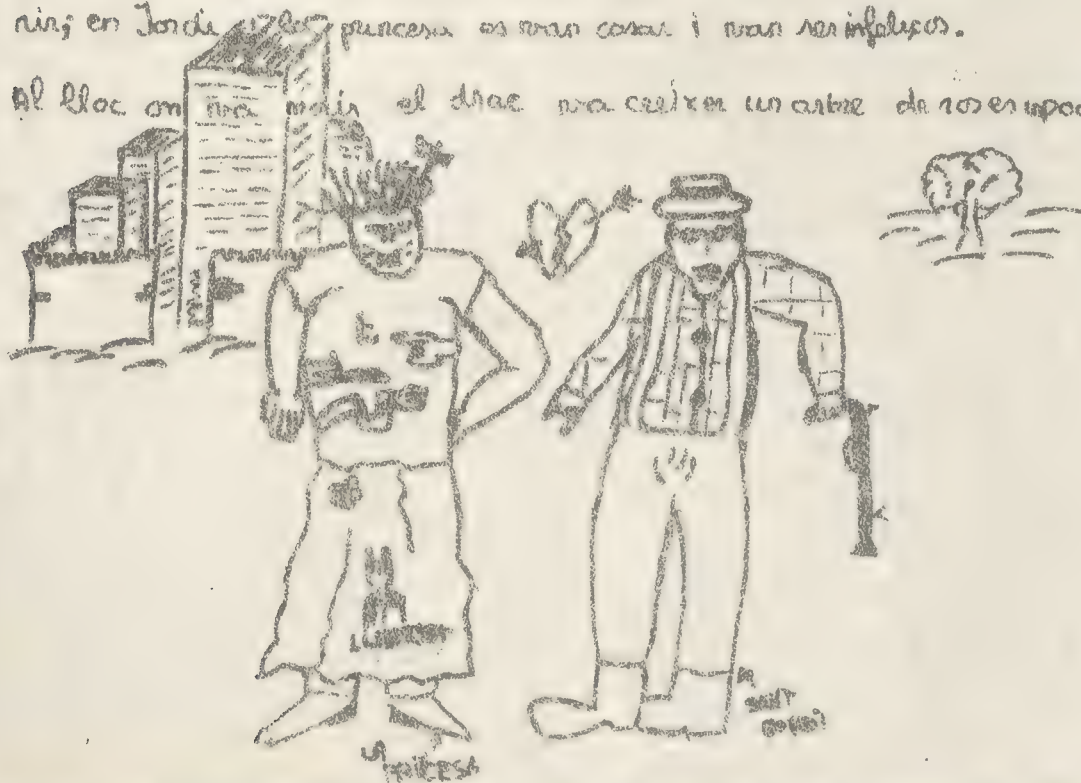 rir; en Jordi i la princesa es van casar i van ser infeliços.
Al lloc on va morir el drac va creixer un arbre de roses
t
PRINCESA
SANT